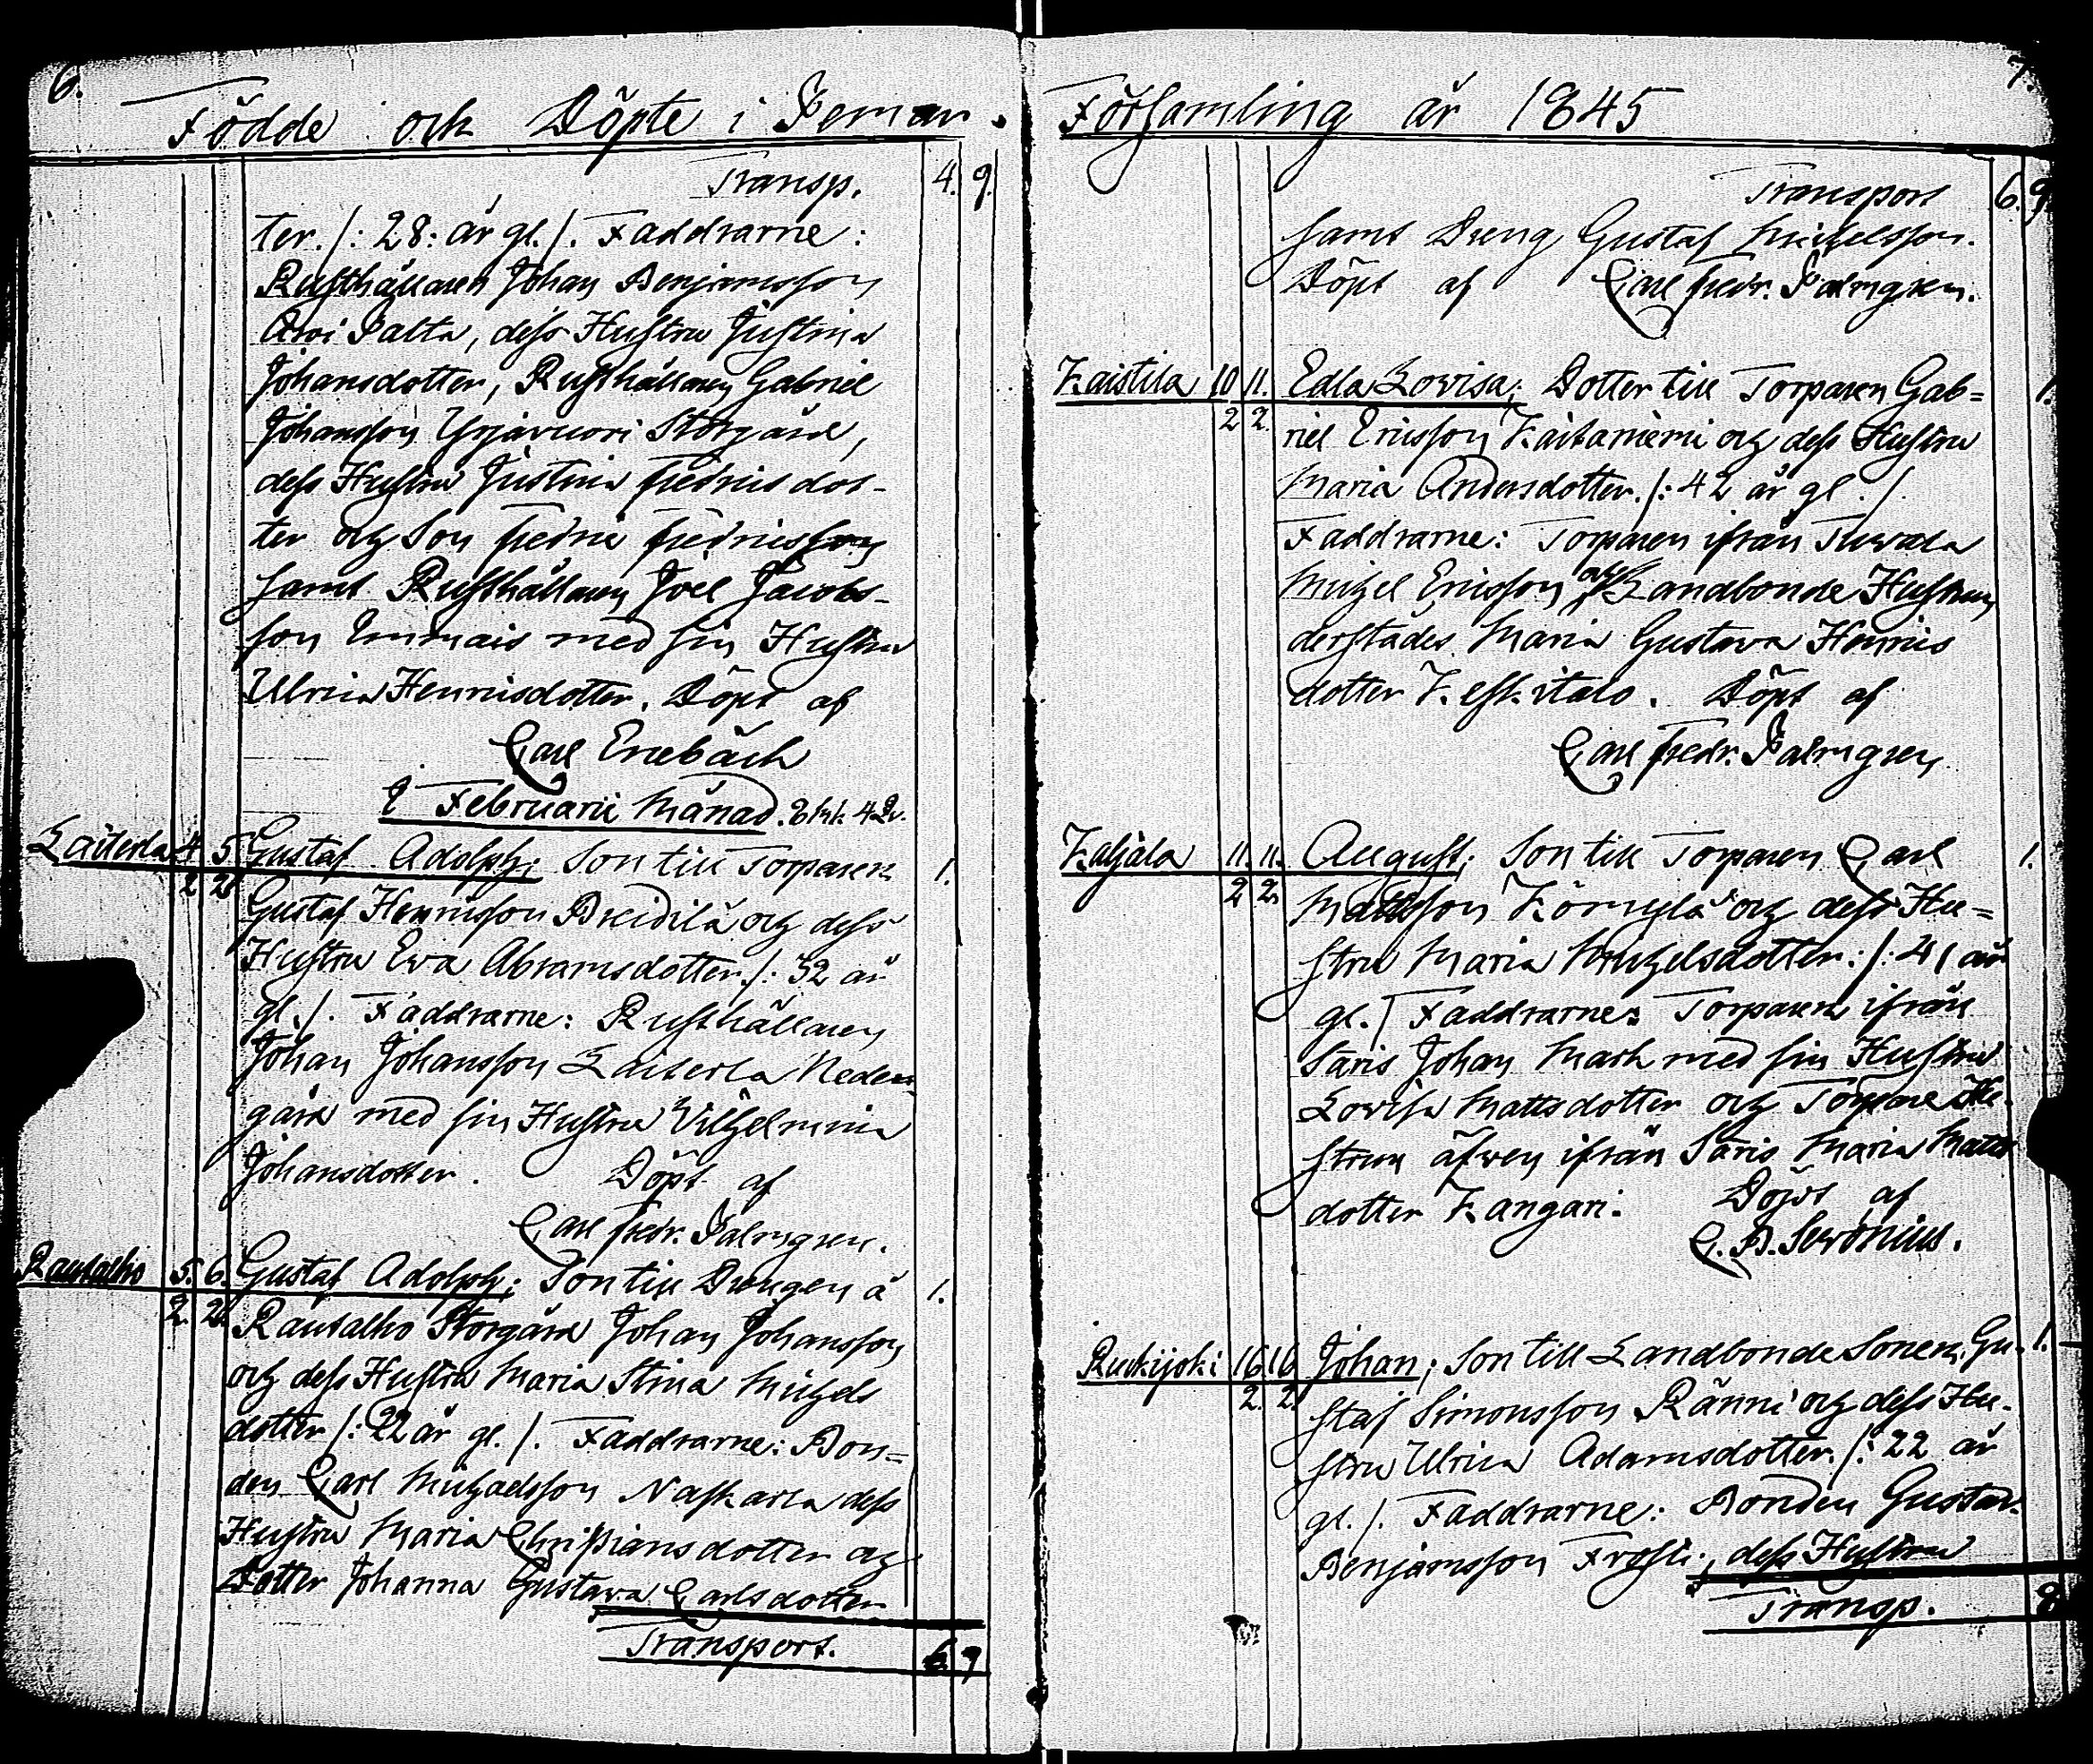 6.
Födde och Döpte i Pemar.
Transp. 4. 9.
ter. /: 28: år gl. /. Faddrarne:
Rusthållaren Johan Benjamsson
Arvi Palta, dess Hustru Justina
Johansdotter, Rusthållaren Gabriel
Johansson Yrjänvuori Storgård,
dess Hustru Justina Fredricsdot-
ter och Son Fredric Fredricsson
samt Rusthållaren Joel Jacobs-
son med sin Hustru
Ulrica Henricsdotter. Döpt af
Carl Enebäck
i Februarii Månad.
Laiterla 4 5 Gustaf Adolph; Son till Torparen 1.
2 2 Gustaf Henricsson Breidilä och dess
Hustru Eva Abramsdotter. /: 32 år
gl. /. Faddrarne: Rusthållaren
Johan Johansson Laiterla Neder
gård med sin Hustru Vilhelmina
Johansdotter. Döpt af
Carl Fredr. Palmgren.
Rausalho 5. 6. Gustaf Adolph; Son till Drengen å 1.
2. 2. Rausalho Storgård Johan Johansson
och dess Hustru Maria Stina Michels
dotter /: 22 år gl. /. Faddrarne: Bon=
den Carl Michaelsson Naskarla dess
Hustru Maria Christiansdotter och
Dotter Johanna Gustava Carlsdotter
Transport. 6. 9
7.
Församling år 1845
Transport 6. 9.
samt Dreng Gustaf Michelsson.
Döpt af Carl Fredr. Palmgren.
Kaistila 10 11. Edla Lovisa; Dotter till Torparen Gab= 1.
2 2. riel Ericsson Kaitaniemi och dess Hustru
Maria Andersdotter. /: 42 år gl. /.
Faddrarne: Torparen ifrån Tuwala
Michel Ericsson och Landbonde Hustrun
derstädes Maria Gustava Henrics
dotter Keskitalo. Döpt af
Carl Fredr. Palmgren
Kaljala 11. 11. August; Son till Torparen Carl 1.
2 2. Mattsson Környlä och dess Hu=
stru Maria Michelsdotter. /: 41 år
gl. / Faddrarne: Torparen ifrån
Saris Johan Mark med sin Hustru
Lovisa Mattsdotter och Torpare Hu-
strun äfven ifrån Saris Maria Matts
dotter Kangari. Döpt af
C. B. Seronius.
Ruckijoki 16 16 Johan; Son till Landbonde Sonen Gu- 1.
2. 2. staf Simonsson Ränni och dess Hu-
stru Ulrica Adamsdotter. /: 22 år
gl. /. Faddrarne: Bonden Gustav
Benjamsson Frösti, dess Hustru
Transp. 8